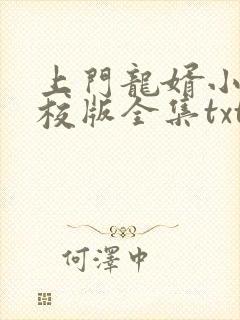 上門龍婿小
校版全集txt
何澤中